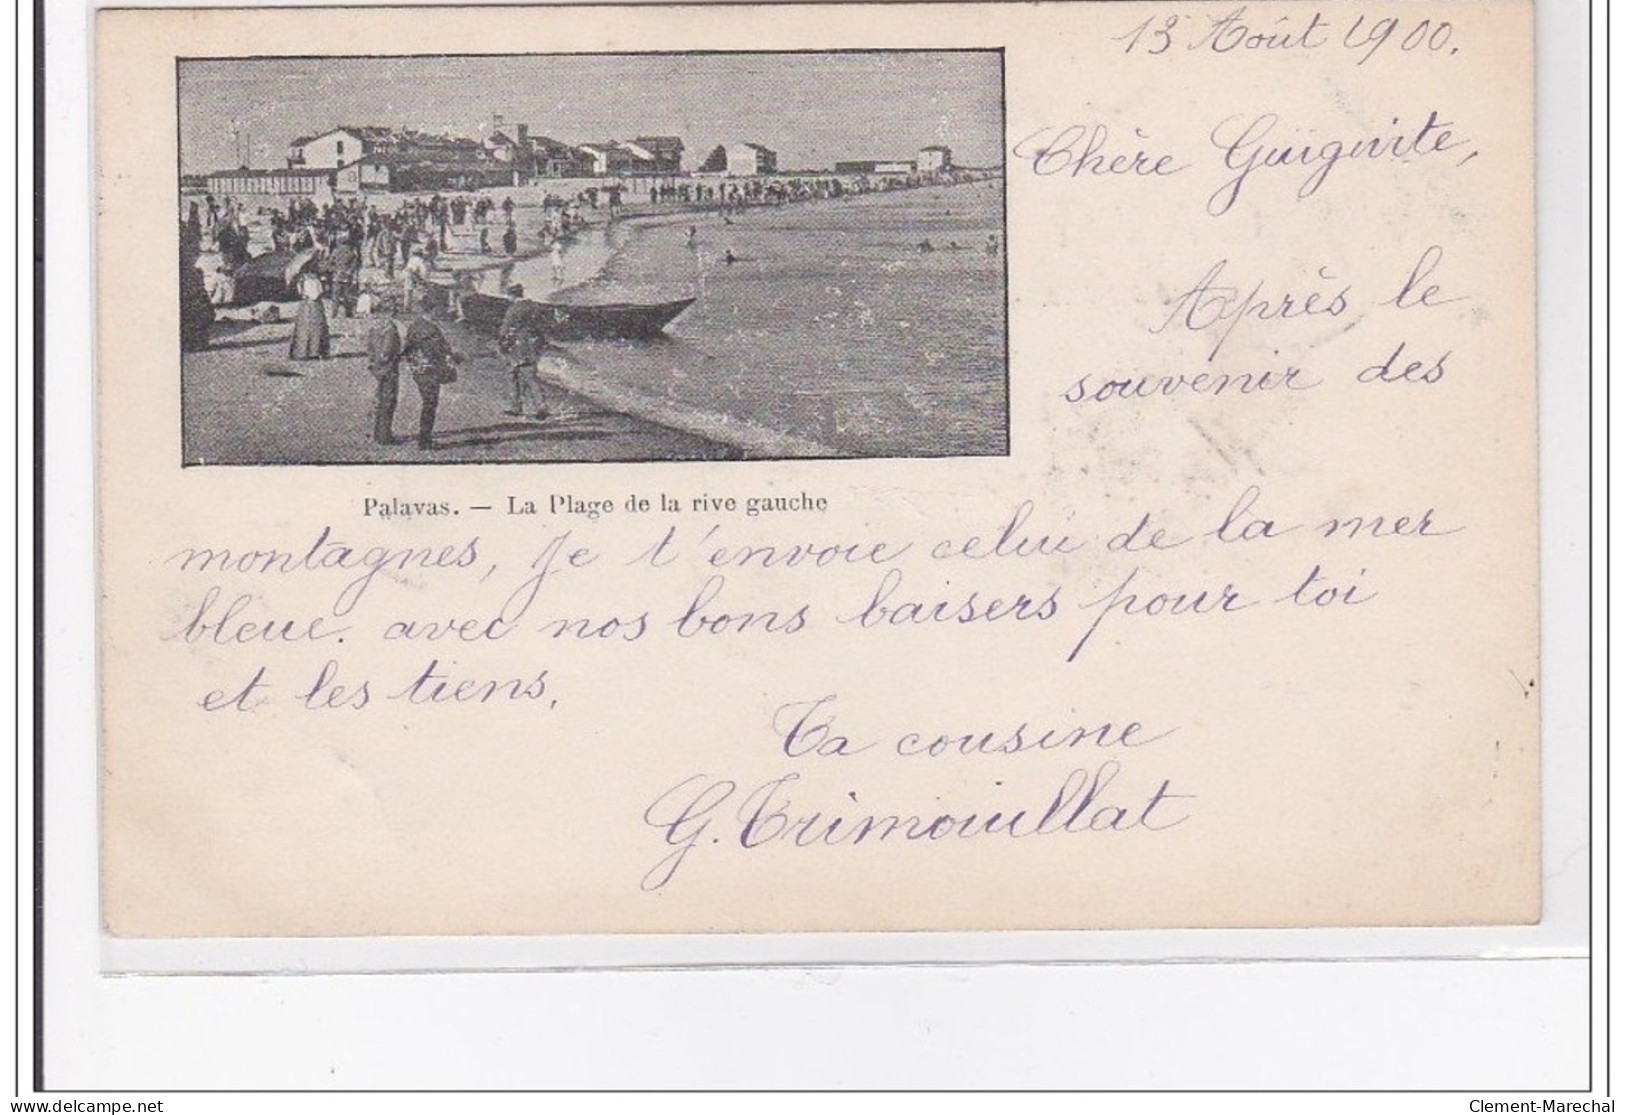 13 Août 1900.
Chère Guiguite,
Après le
souvenir des
Palavas. — La Plage de la rive gauche
montagnes, je t'envoie celui de la mer
bleue. avec nos bons baisers pour toi
et les tiens.
Ta cousine
G. Trimouillat
delcampe.net
Clement-Marechal